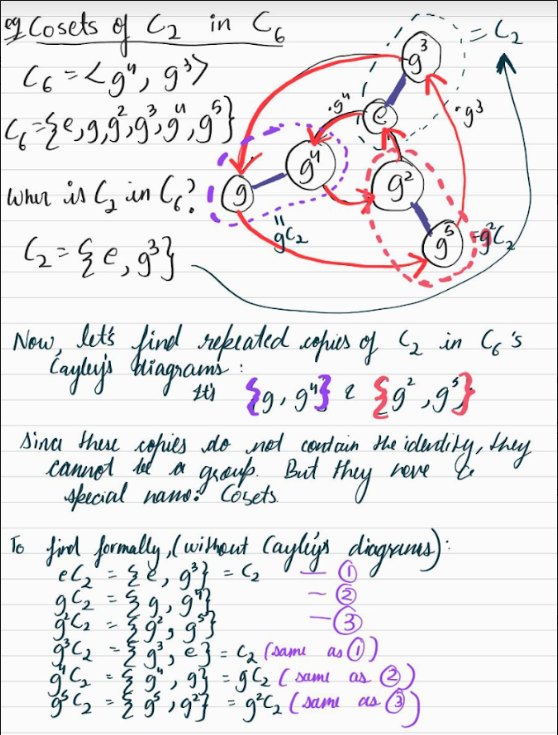 eg Cosets of C₂ in C₆
C₆ = <g⁴, g³>
C₆ = {e, g, g², g³, g⁴, g⁵}
Wher is C₂ in C₆?
C₂ = {e, g³}
g³
= C₂
e
·g⁴
·g³
g⁴
g
g²
g⁵
= g²C₂
"
gC₂
Now, let's find repeated copies of C₂ in C₆'s
Cayley's diagrams:
It's {g, g⁴} & {g², g⁵}
Since these copies do not contain the identity, they
cannot be a group. But they have a
special name: Cosets
To find formally, (without Cayley's diagrams):
eC₂ = {e, g³} = C₂ — ①
gC₂ = {g, g⁴} — ②
g²C₂ = {g², g⁵} — ③
g³C₂ = {g³, e} = C₂ (same as ①)
g⁴C₂ = {g⁴, g} = gC₂ (same as ②)
g⁵C₂ = {g⁵, g²} = g²C₂ (same as ③)